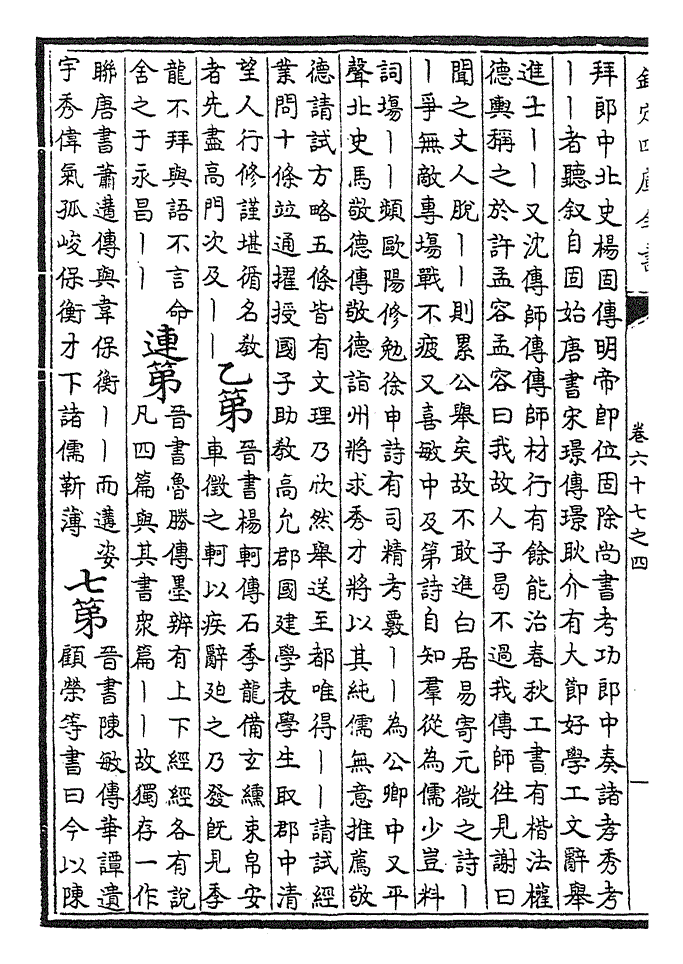 欽定四庫全書
卷六十七之四
一
拜郎中北史楊固傳明帝即位固除尚書考功郎中奏諸孝秀考
丨丨者聽叙自固始唐書宋璟傳璟耿介有大節好學工文辭舉
進士丨丨又沈傳師傳傳師材行有餘能治春秋工書有楷法權
德輿稱之於許孟容孟容曰我故人子曷不過我傳師徃見謝曰
聞之丈人脫丨丨則累公舉矣故不敢進白居易寄元微之詩丨
丨爭無敵專塲戰不疲又喜敏中及第詩自知羣從為儒少豈料
詞塲丨丨頻歐陽修勉徐申詩有司精考覈丨丨為公卿中又平
聲北史馬敬德傳敬德詣州將求秀才將以其純儒無意推薦敬
德請試方略五條皆有文理乃欣然舉送至都唯得丨丨請試經
業問十條竝通擢授國子助敎高允郡國建學表學生取郡中清
望人行修謹堪循名敎
者先盡高門次及丨丨
乙第
晉書楊軻傳石季龍備玄纁束帛安
車徵之軻以疾辭廹之乃發旣見季
龍不拜與語不言命
舍之于永昌丨丨
連第
晉書魯勝傳墨辨有上下經經各有說
凡四篇與其書衆篇丨丨故獨存一作
聯唐書蕭遘傳與韋保衡丨丨而遘姿
宇秀偉氣孤峻保衡才下諸儒靳薄
七第
晉書陳敏傳華譚遺
顧榮等書曰今以陳